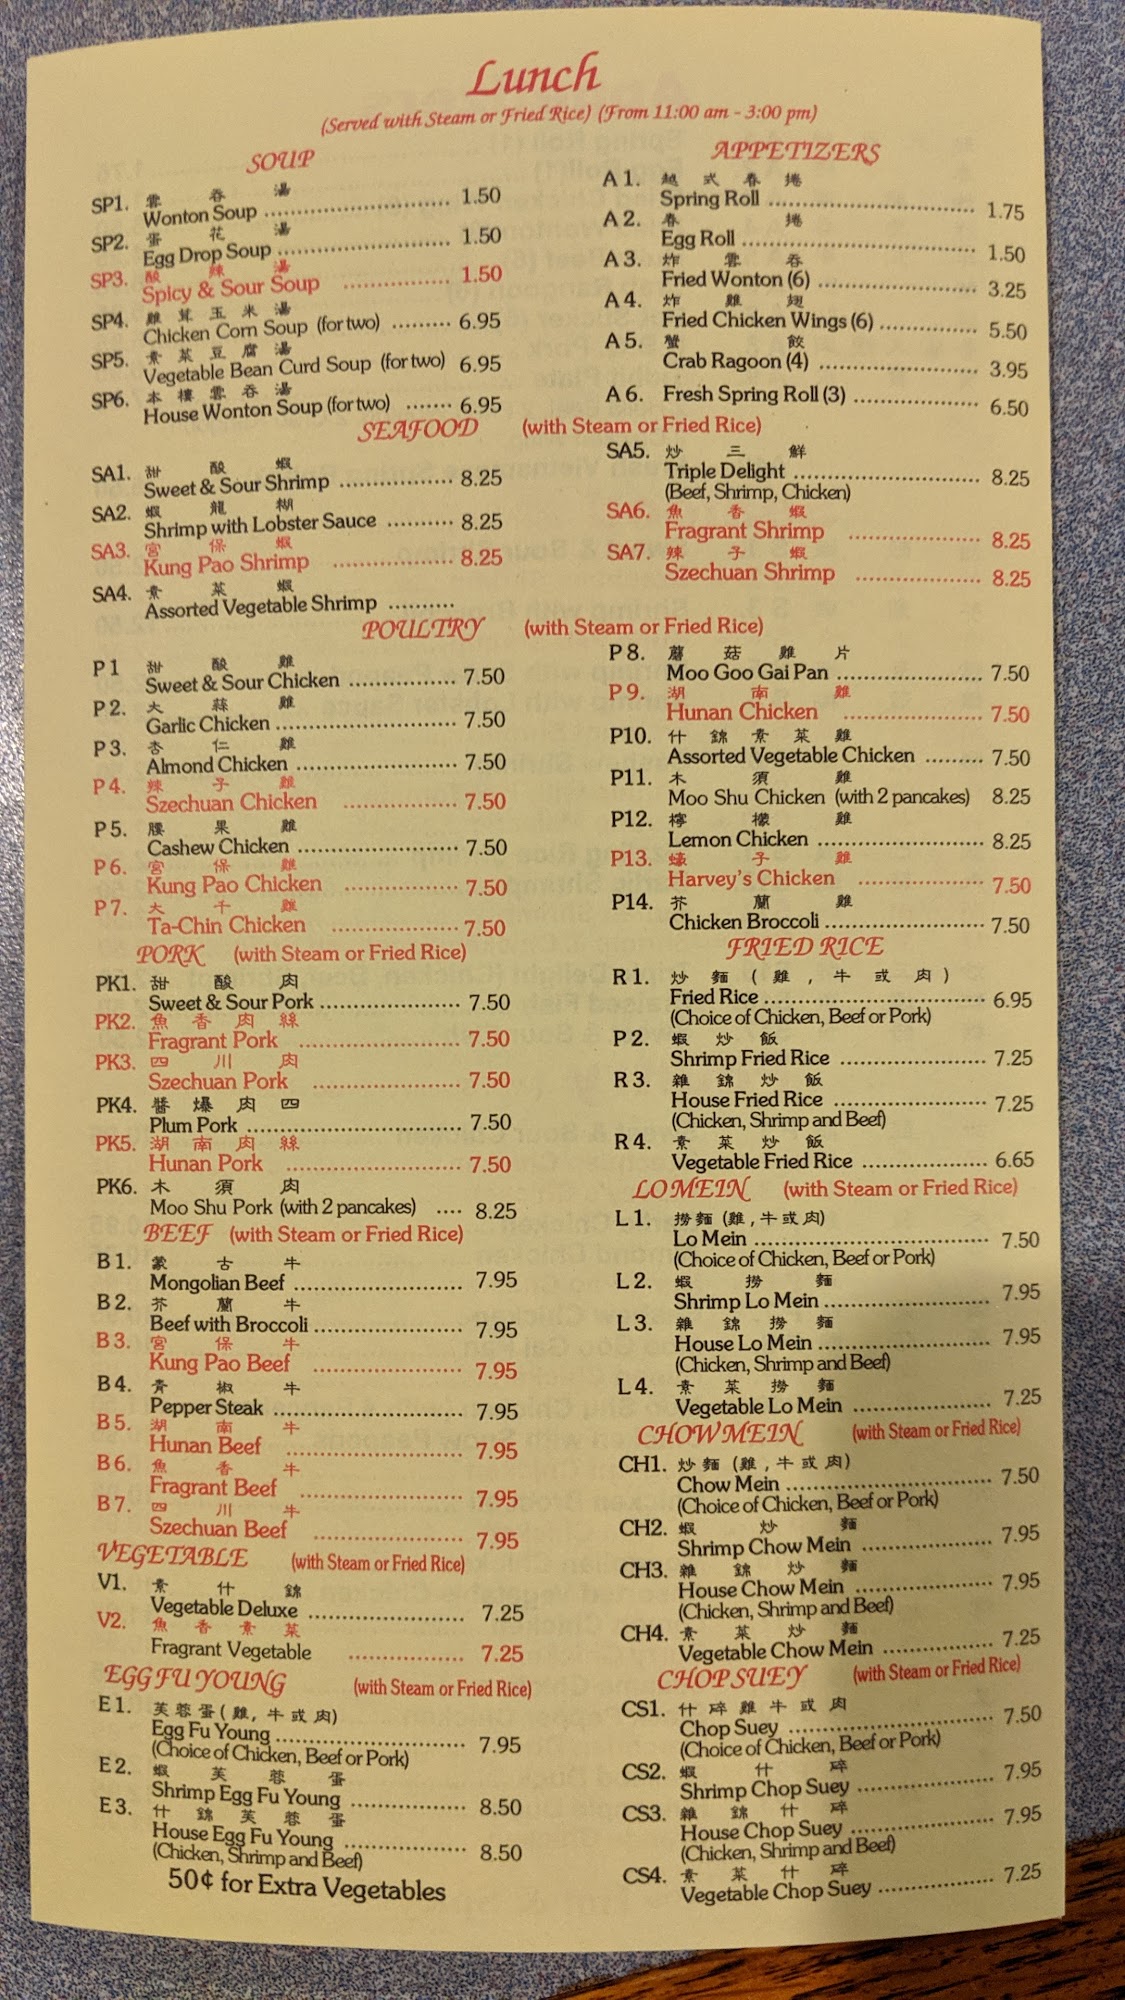 Lunch
(Served with Steam or Fried Rice) (From 11:00 am - 3:00 pm)
SOUP
SP1. 雲吞湯
Wonton Soup 1.50
SP2. 蛋花湯
Egg Drop Soup 1.50
SP3. 酸辣湯
Spicy & Sour Soup 1.50
SP4. 雞茸玉米湯
Chicken Corn Soup (for two) 6.95
SP5. 素菜豆腐湯
Vegetable Bean Curd Soup (for two) 6.95
SP6. 本樓雲吞湯
House Wonton Soup (for two) 6.95
APPETIZERS
A 1. 越式春捲
Spring Roll 1.75
A 2. 春捲
Egg Roll 1.50
A 3. 炸雲吞
Fried Wonton (6) 3.25
A 4. 炸雞翅
Fried Chicken Wings (6) 5.50
A 5. 蟹餃
Crab Ragoon (4) 3.95
A 6. Fresh Spring Roll (3) 6.50
SEAFOOD (with Steam or Fried Rice)
SA1. 甜酸蝦
Sweet & Sour Shrimp 8.25
SA2. 蝦龍糊
Shrimp with Lobster Sauce 8.25
SA3. 宮保蝦
Kung Pao Shrimp 8.25
SA4. 素菜蝦
Assorted Vegetable Shrimp
SA5. 炒三鮮
Triple Delight 8.25
(Beef, Shrimp, Chicken)
SA6. 魚香蝦
Fragrant Shrimp 8.25
SA7. 辣子蝦
Szechuan Shrimp 8.25
POULTRY (with Steam or Fried Rice)
P 1 甜酸雞
Sweet & Sour Chicken 7.50
P 2. 大蒜雞
Garlic Chicken 7.50
P 3. 杏仁雞
Almond Chicken 7.50
P 4. 辣子雞
Szechuan Chicken 7.50
P 5. 腰果雞
Cashew Chicken 7.50
P 6. 宮保雞
Kung Pao Chicken 7.50
P 7. 大千雞
Ta-Chin Chicken 7.50
P 8. 蘑菇雞片
Moo Goo Gai Pan 7.50
P 9. 湖南雞
Hunan Chicken 7.50
P10. 什錦素菜雞
Assorted Vegetable Chicken 7.50
P11. 木須雞
Moo Shu Chicken (with 2 pancakes) 8.25
P12. 檸檬雞
Lemon Chicken 8.25
P13. 蠔子雞
Harvey's Chicken 7.50
P14. 芥蘭雞
Chicken Broccoli 7.50
PORK (with Steam or Fried Rice)
PK1. 甜酸肉
Sweet & Sour Pork 7.50
PK2. 魚香肉絲
Fragrant Pork 7.50
PK3. 四川肉
Szechuan Pork 7.50
PK4. 醬爆肉四
Plum Pork 7.50
PK5. 湖南肉絲
Hunan Pork 7.50
PK6. 木須肉
Moo Shu Pork (with 2 pancakes) 8.25
FRIED RICE
R 1. 炒麵(雞,牛或肉)
Fried Rice 6.95
(Choice of Chicken, Beef or Pork)
P 2. 蝦炒飯
Shrimp Fried Rice 7.25
R 3. 雜錦炒飯
House Fried Rice 7.25
(Chicken, Shrimp and Beef)
R 4. 素菜炒飯
Vegetable Fried Rice 6.65
BEEF (with Steam or Fried Rice)
B 1. 蒙古牛
Mongolian Beef 7.95
B 2. 芥蘭牛
Beef with Broccoli 7.95
B 3. 宮保牛
Kung Pao Beef 7.95
B 4. 青椒牛
Pepper Steak 7.95
B 5. 湖南牛
Hunan Beef 7.95
B 6. 魚香牛
Fragrant Beef 7.95
B 7. 四川牛
Szechuan Beef 7.95
LO MEIN (with Steam or Fried Rice)
L 1. 撈麵(雞,牛或肉)
Lo Mein 7.50
(Choice of Chicken, Beef or Pork)
L 2. 蝦撈麵
Shrimp Lo Mein 7.95
L 3. 雜錦撈麵
House Lo Mein 7.95
(Chicken, Shrimp and Beef)
L 4. 素菜撈麵
Vegetable Lo Mein 7.25
VEGETABLE (with Steam or Fried Rice)
V1. 素什錦
Vegetable Deluxe 7.25
V2. 魚香素菜
Fragrant Vegetable 7.25
CHOW MEIN (with Steam or Fried Rice)
CH1. 炒麵(雞,牛或肉)
Chow Mein 7.50
(Choice of Chicken, Beef or Pork)
CH2. 蝦炒麵
Shrimp Chow Mein 7.95
CH3. 雜錦炒麵
House Chow Mein 7.95
(Chicken, Shrimp and Beef)
CH4. 素菜炒麵
Vegetable Chow Mein 7.25
EGG FU YOUNG (with Steam or Fried Rice)
E 1. 芙蓉蛋(雞,牛或肉)
Egg Fu Young 7.95
(Choice of Chicken, Beef or Pork)
E 2. 蝦芙蓉蛋
Shrimp Egg Fu Young 8.50
E 3. 什錦芙蓉蛋
House Egg Fu Young 8.50
(Chicken, Shrimp and Beef)
50¢ for Extra Vegetables
CHOP SUEY (with Steam or Fried Rice)
CS1. 什碎雞牛或肉
Chop Suey 7.50
(Choice of Chicken, Beef or Pork)
CS2. 蝦什碎
Shrimp Chop Suey 7.95
CS3. 雜錦什碎
House Chop Suey 7.95
(Chicken, Shrimp and Beef)
CS4. 素菜什碎
Vegetable Chop Suey 7.25